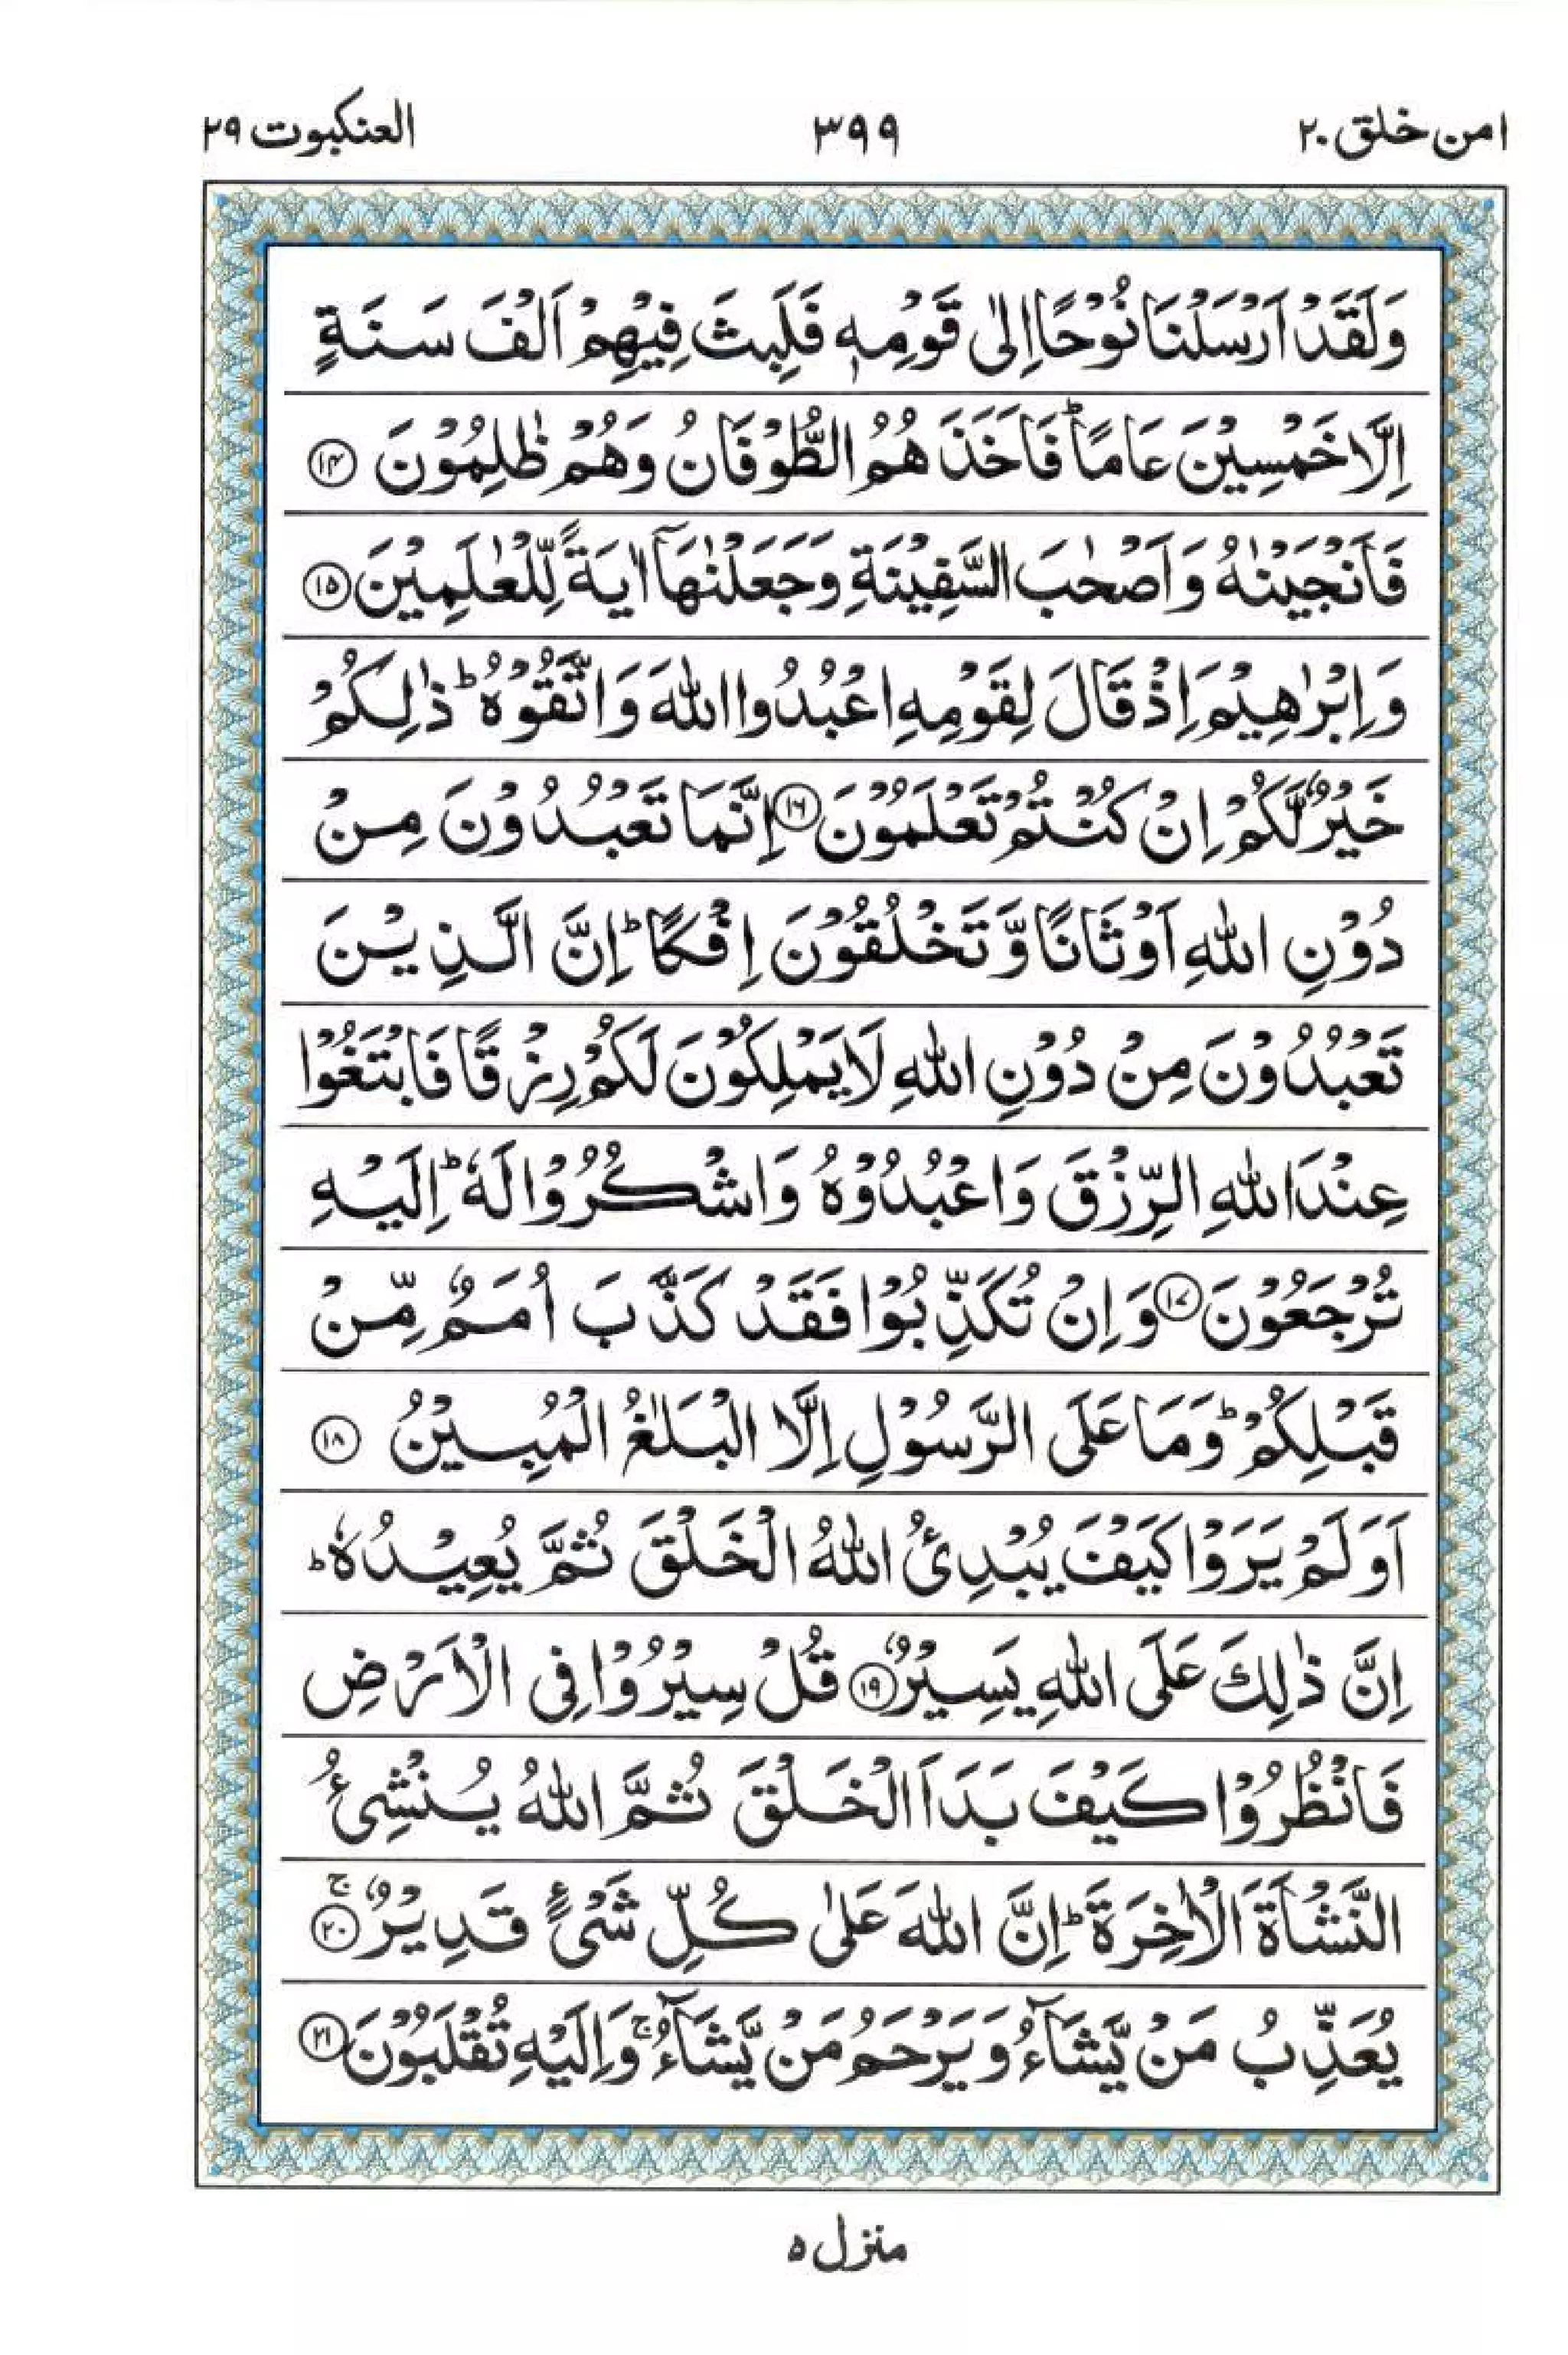 امن خلق ۲۰
۳۹۹
العنكبوت ۲۹
وَلَقَدْ اَرْسَلْنَا نُوْحًا اِلٰى قَوْمِهٖ فَلَبِثَ فِيْهِمْ اَلْفَ سَنَةٍ
اِلَّا خَمْسِيْنَ عَامًا ؕ فَاَخَذَهُمُ الطُّوْفَانُ وَهُمْ ظٰلِمُوْنَ ۝۱۴
فَاَنْجَيْنٰهُ وَاَصْحٰبَ السَّفِيْنَةِ وَجَعَلْنٰهَاۤ اٰيَةً لِّلْعٰلَمِيْنَ ۝۱۵
وَاِبْرٰهِيْمَ اِذْ قَالَ لِقَوْمِهِ اعْبُدُوا اللّٰهَ وَاتَّقُوْهُ ؕ ذٰلِكُمْ
خَيْرٌ لَّكُمْ اِنْ كُنْتُمْ تَعْلَمُوْنَ ۝۱۶ اِنَّمَا تَعْبُدُوْنَ مِنْ
دُوْنِ اللّٰهِ اَوْثَانًا وَّتَخْلُقُوْنَ اِفْكًا ؕ اِنَّ الَّذِيْنَ
تَعْبُدُوْنَ مِنْ دُوْنِ اللّٰهِ لَا يَمْلِكُوْنَ لَكُمْ رِزْقًا فَابْتَغُوْا
عِنْدَ اللّٰهِ الرِّزْقَ وَاعْبُدُوْهُ وَاشْكُرُوْا لَهٗ ؕ اِلَيْهِ
تُرْجَعُوْنَ ۝۱۷ وَاِنْ تُكَذِّبُوْا فَقَدْ كَذَّبَ اُمَمٌ مِّنْ
قَبْلِكُمْ ؕ وَمَا عَلَى الرَّسُوْلِ اِلَّا الْبَلٰغُ الْمُبِيْنُ ۝۱۸
اَوَلَمْ يَرَوْا كَيْفَ يُبْدِئُ اللّٰهُ الْخَلْقَ ثُمَّ يُعِيْدُهٗ ؕ
اِنَّ ذٰلِكَ عَلَى اللّٰهِ يَسِيْرٌ ۝۱۹ قُلْ سِيْرُوْا فِى الْاَرْضِ
فَانْظُرُوْا كَيْفَ بَدَاَ الْخَلْقَ ثُمَّ اللّٰهُ يُنْشِئُ
النَّشْاَةَ الْاٰخِرَةَ ؕ اِنَّ اللّٰهَ عَلٰى كُلِّ شَىْءٍ قَدِيْرٌ ۚ۝۲۰
يُعَذِّبُ مَنْ يَّشَآءُ وَيَرْحَمُ مَنْ يَّشَآءُ ۚ وَاِلَيْهِ تُقْلَبُوْنَ ۝۲۱
منزل ۵